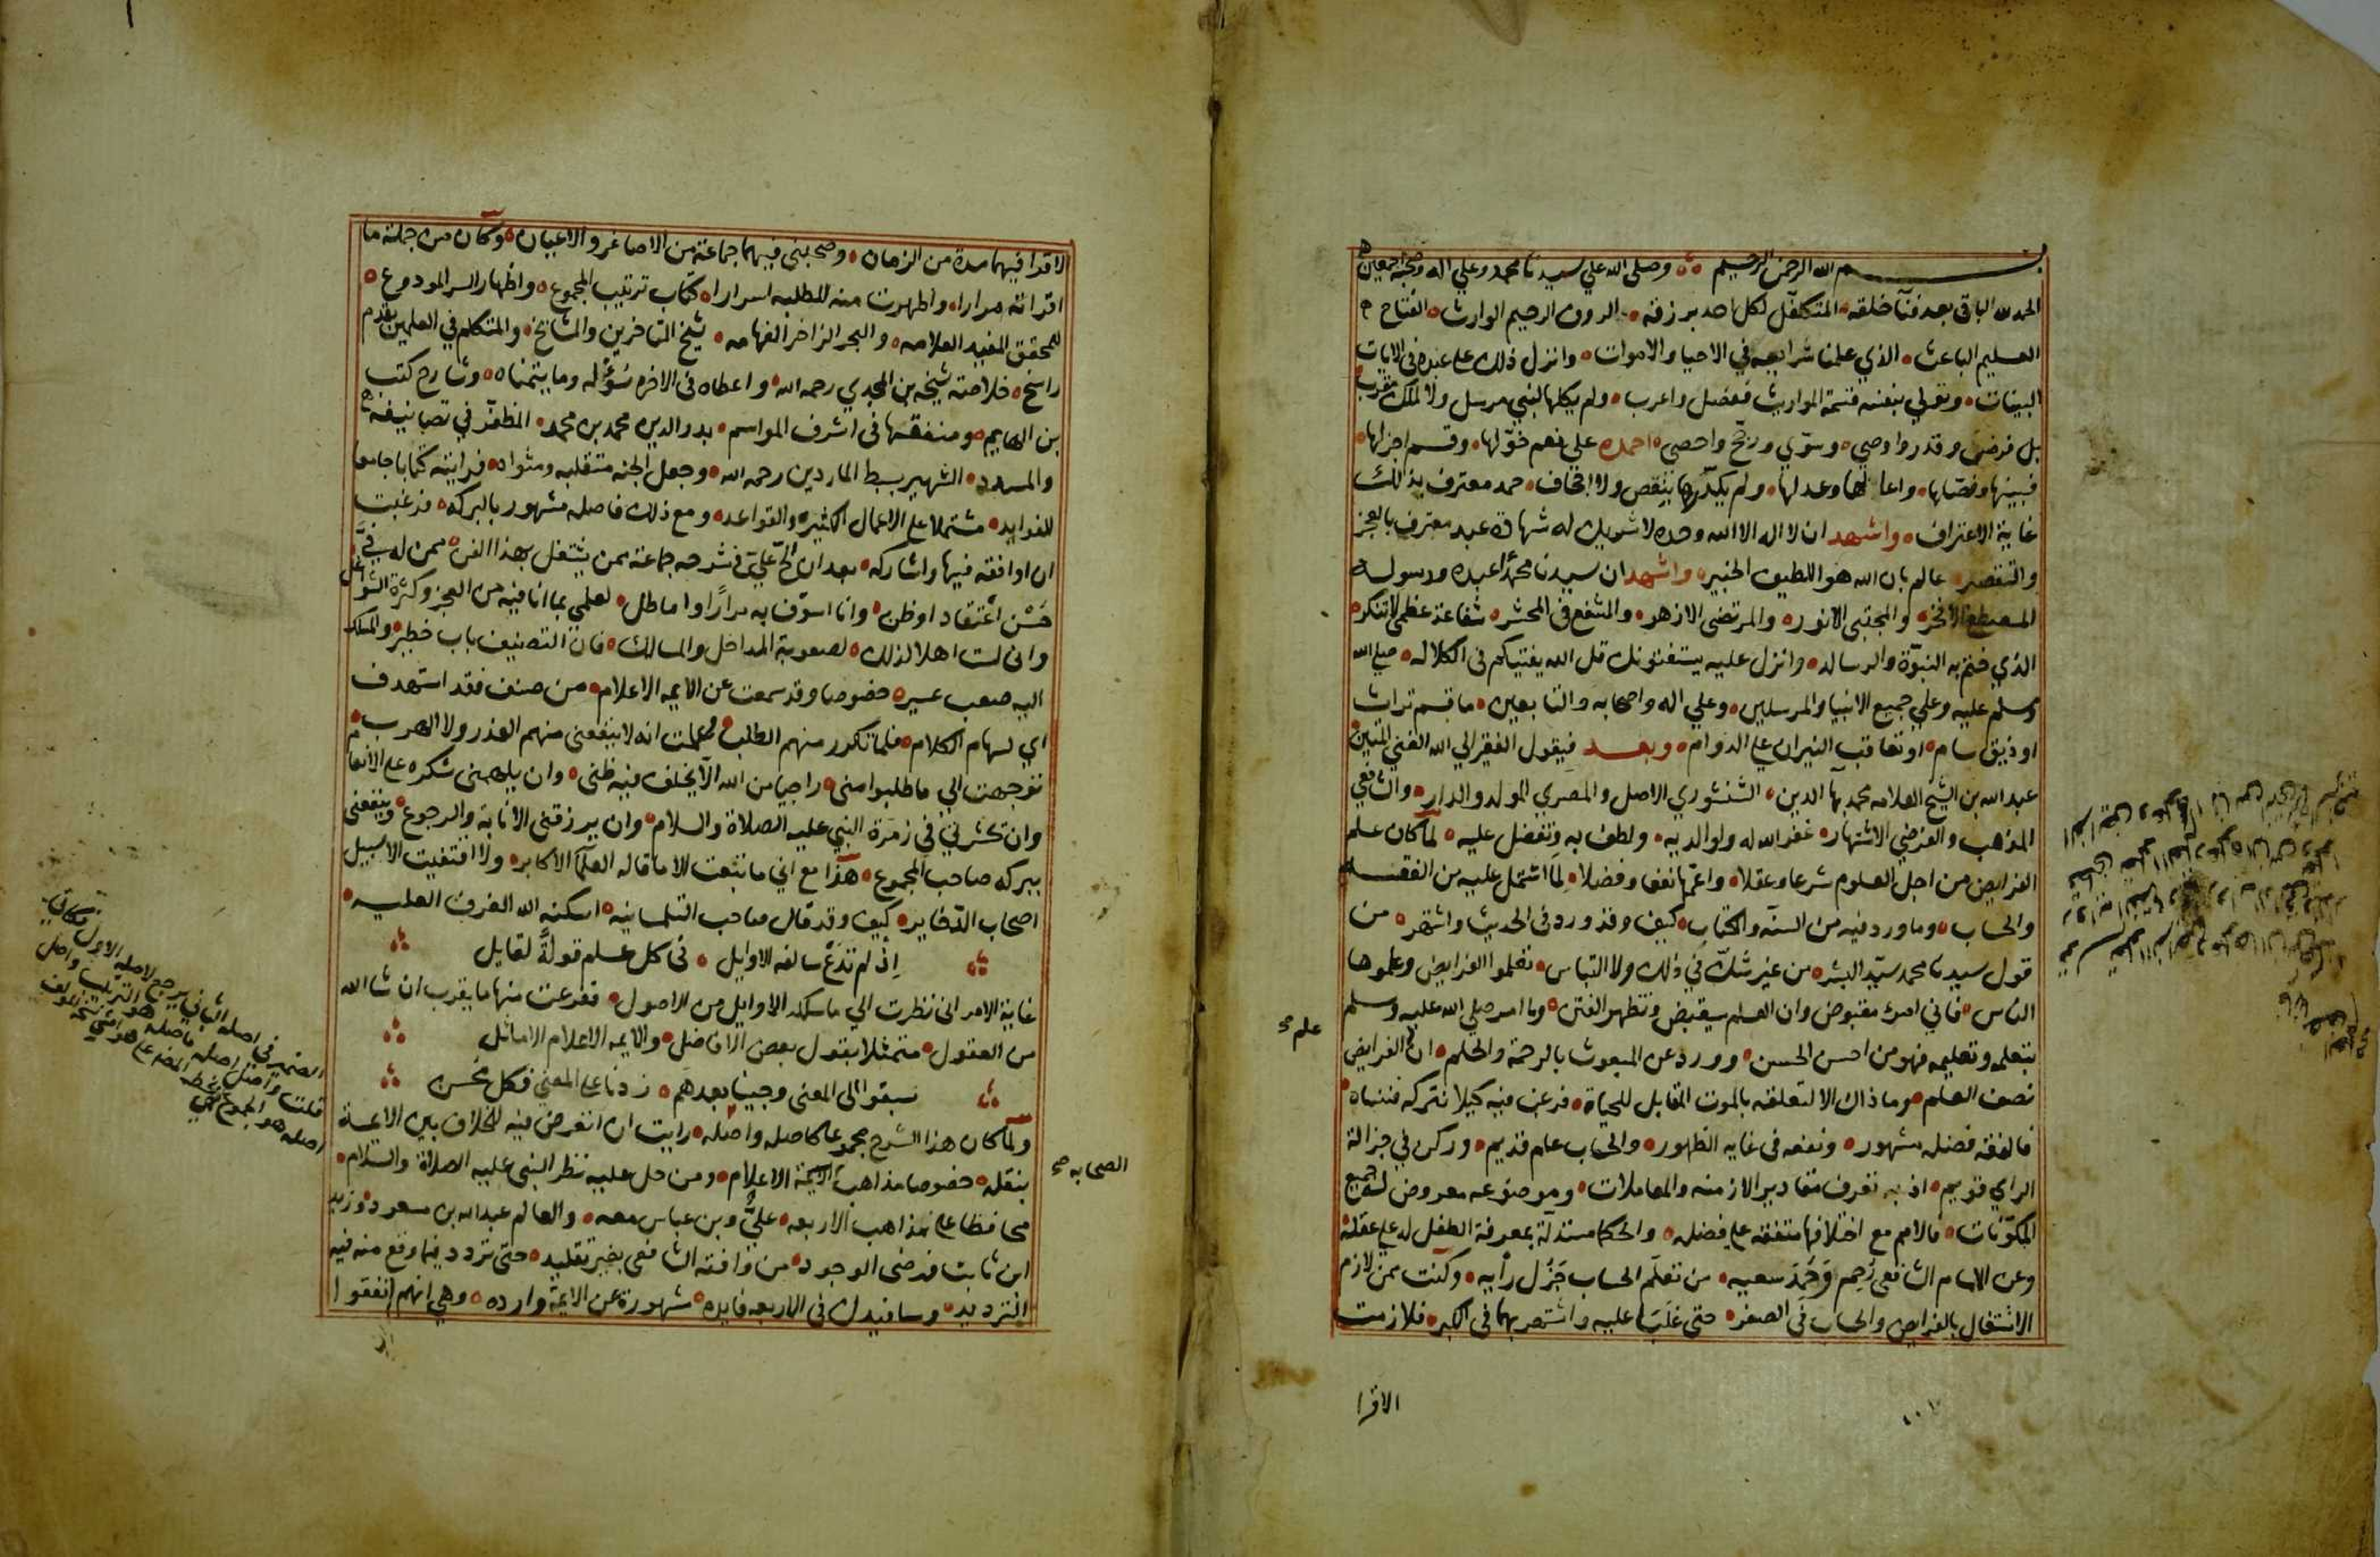 بسم الله الرحمن الرحيم وصلى الله علي سيدنا محمد وعلي اله وصحبه اجمعين
الحمد لله الباقى بعد فنآ خلقه المتكفل لكل احد برزقه الروف الرحيم الوارث الفتاح
العليم الباعث الذي علمنا شرايعه في الاحيا والاموات وانزل ذلك على عبده فى الايات
البينات وتولي بنفسه قسمة المواريث ففضل واعرب ولم يكلها لنبي مرسل ولا لملك مقرب
بل فرض وقدر واوصي وسوّي ورجّح واحصي احمده علي نعم خوّلها وقسم اجزلها
فبينها وفصّلها واعالها وعدلها ولم يكدّرها بنقص ولا اجحاف حمد معترف بذالك
غاية الاعتراف واشهد ان لا اله الا الله وحده لا شريك له شهادة عبد معترف بالعجز
والتقصير عالم بان الله هو اللطيف الخبير واشهد ان سيدنا محمدًا عبده ورسوله
المصطفى الافخر والمجتبى الانور والمرتضى الازهر والمشفع فى المحشر شفاعة عظمى لا تنكر
الذي ختم به النبوّة والرساله وانزل عليه يستفتونك قل الله يفتيكم فى الكلاله صلى الله
وسلم عليه وعلي جميع الانبيا والمرسلين وعلي اله واصحابه والتابعين ما قسم تراث
او ذيق سام او تعاقب النيران على الدوام وبعد فيقول الفقير الي الله الغني المتين
عبد الله بن الشيخ العلامه محمد بهآ الدين الشنشوري الاصل والمصري المولد والدار والشافعي
المذهب والفرضي الاشتهار غفر الله له ولوالديه ولطف به وتفضل عليه لمّا كان علم
الفرايض من اجل العلوم شرعا وعقلا واعمّها نفعا وفضلا لما اشتمل عليه من الفقه
والحساب وما ورد فيه من السنة والكتاب كيف وقد ورد فى الحديث واشتهر من
قول سيدنا محمد سيّد البشر من غير شكّ في ذلك ولا التباس تعلموا الفرايض وعلموها
الناس فاني امرؤ مقبوض وان العلم سيقبض وتظهر الفتن وما امر صلي الله عليه وسلم
علم صح
بتعلمه وتعليمه فهو من احسن الحسن وورد عن المبعوث بالرحمة والحلم ان الفرايض
نصف العلم وما ذاك الا لتعلقه بالموت المقابل للحياة فرغب فيه كيلا نتركه فننساه
فالفقه فضله مشهور ونفعه فى غايه الظهور والحساب علم قديم وركن في جزالة
الراي قويم اذ به تعرف مقادير الازمنه والمعاملات وموضوعه معروض لجميع
المكوّنات فالامم مع اختلافها متفقه على فضله والحكما مستدلّة بمعرفة الطفل له على عقله
وعن الامام الشافعى رُحِم وَحُمِدَ سعيه من تعلّم الحساب جَزُل رأيه وكنت ممن لازم
الاشتغال بالفرايض والحساب فى الصغر حتى غلَبَا عليه واشتهر بهما فى الكبر فلازمت
الاقرا
الاقرا فيهما مدة من الزمان وصحبني فيهما جماعة من الاصاغر والاعيان وكان من جملة ما
اقراته مرارا واظهرت منه للطلبه اسرارا كتاب ترتيب المجموع واظهار السر المودوع
للمحقق المفيد العلامه والبحر الزاخر الفهامه شيخ المتاخرين والمشايخ والمتكلم في العلمين بقدم
راسخ خلاصة شيخه بن المجدي رحمه الله واعطاه فى الاخره سُؤْله وما يتمناه وشارح كتب
بن الهايم ومنفقها فى اشرف المواسم بدر الدين محمد بن محمد المظفّر في تصانيفه
والمسدد الشهير بسبط الماردين رحمه الله وجعل الجنة متقلبه ومثواه فرايته كتابا جامعا
للفوايد مشتملا على الاعمال الكثيره والقواعد ومع ذلك فاصله مشهور بالبركه فرغبت
ان اوافقه فيها واشاركه بعد ان الحّ عليّ فى شرحه جماعة ممن يشتغل بهذا الفن ممن له فيّ
حَسَن اعتقاد او ظن وانا اسوّف به مرارًا واماطل لعلمي بما انا فيه من العجز وكثرة الشواغل
واني لست اهلا لذلك لصعوبة المداخل والمسالك فان التصنيف باب خطير والمسلك
اليه صعب عسير خصوصا وقد سمعت عن الايمه الاعلام من صنف فقد استهدف
اي لسهام الكلام فلما تكرر منهم الطلب وعلمت انه لا ينفعني منهم العذر ولا الهرب
توجهت الي ما طلبوا مني راجيا من الله الّا يخلف فيه ظني وان يلهمنى شكره على الانعام
وان يحشرني في زمرة النبي عليه الصلاة والسلام وان يرزقني الانابة والرجوع وينفعني
ببركه صاحب المجموع هذا مع اني ما تتبعت الا ما قاله العلمآ الاكابر ولا اقتفيت الا سبيل
اصحاب الدّفاير كيف وقد قال صاحب التلمسانيه اسكنه الله الغرف العليه
اذ لم تدع سالفه الاوايل فى كل علم قولةً لقايل
غاية الامر انى نظرت الي ما سلكه الاوايل من الاصول ففرعت منها ما يقرب ان شا الله
من العقول متمثلا بقول بعض الافاضل والايمه الاعلام الاماثل
سبقوا الى المعنى وجينا بعدهم زدنا على المعنى فكل محسن
ولمّا كان هذا الشرح مجموعا كاصله واصله رايت ان اتعرض فيه للخلاف بين الايمة
بنقله خصوصا مذاهب الايمة الاعلام ومن حل عليه نظر النبي عليه الصلاة والسلام
الصحابه صح
محافظا على مذاهب الاربعه عليٌّ وبن عباس معه والعالم عبد الله بن مسعود وزيد
ابن ثابت فرضى الوجود من وافقه الشافعى بغير تقليد حتى تردد فيما وقع منه فيه
الترديد وسافيدك فى الاربعه فايده مشهورة عن الايمة وارده وهي انهم اتفقوا
الضمير في اصله الثاني يرجع لاصله الاول
قلت واصل اصله فاصله هو الترتيب واصل
اصله هو المجموع